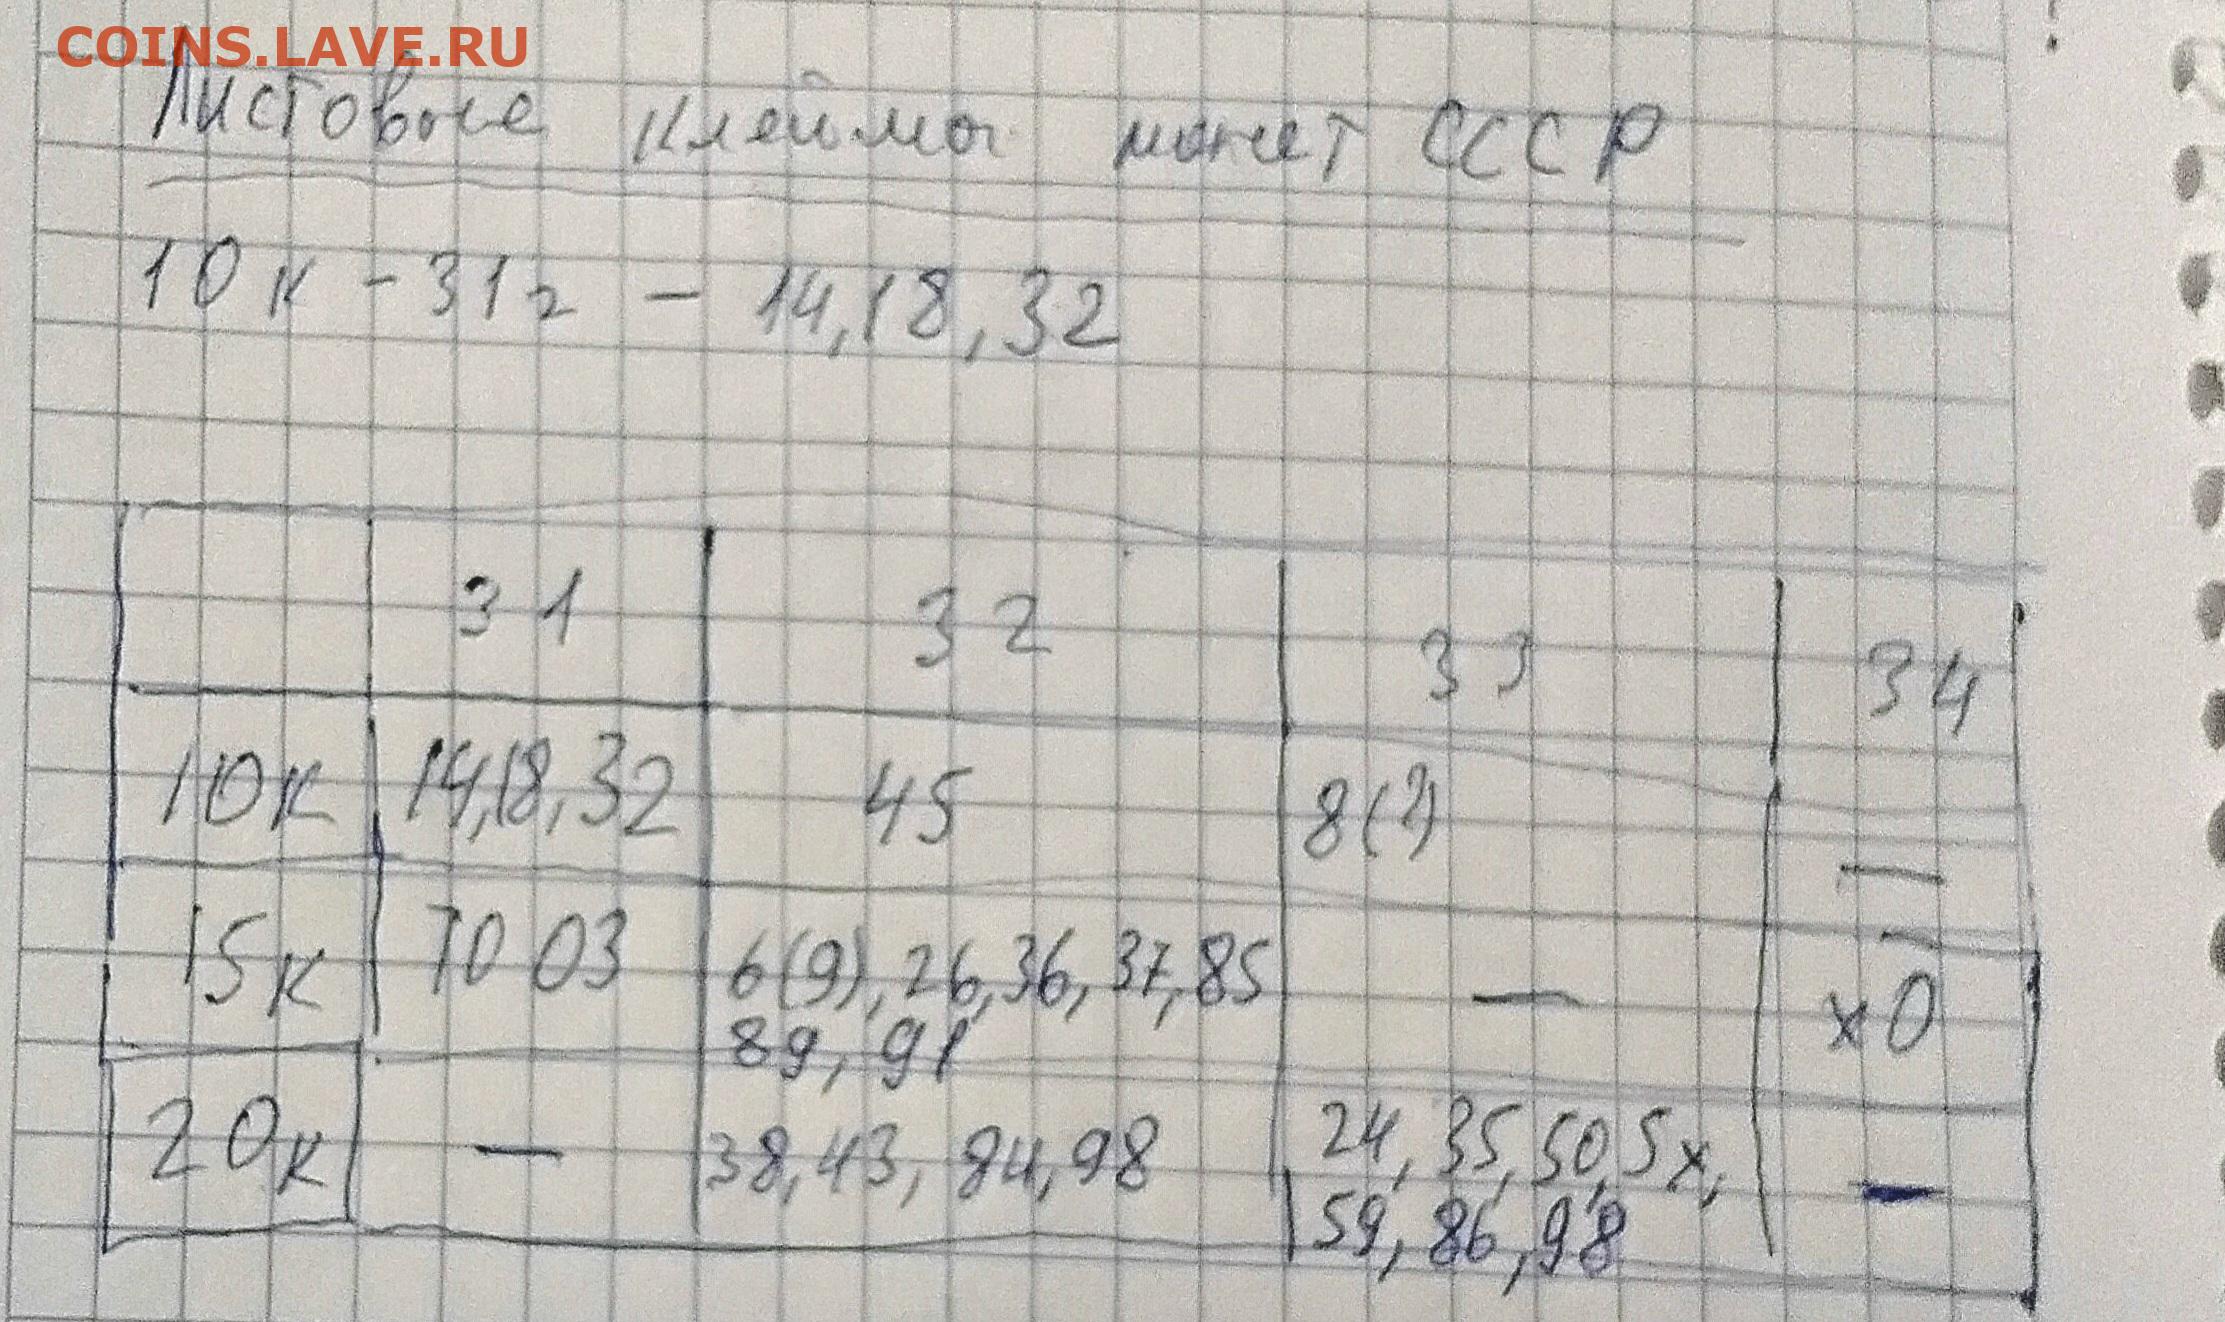 COINS.LAVE.RU
Листовые клеймы монет СССР
10к - 31г - 14,18,32
31 32 33 34
10к 14,18,32 45 8(?) —
15к 70 03 6(9),26,36,37,85 — x0
89,91
20к — 38,43,84,98 24,35,50,5x, —
59,86,98